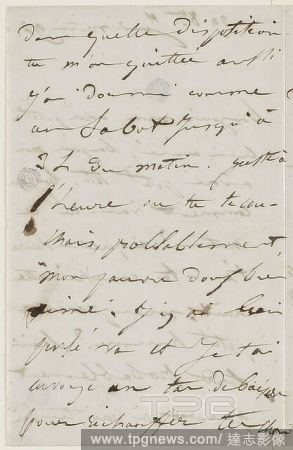 dans quelle disposition
tu m'as quittée aussi
j'ai dormi comme
un sabot jusqu'à
3 h du matin. juste à
l'heure où tu te cou-
chais, probablement,
mon pauvre doux bien
aimé. J'y ai bien
pensé va et je t'ai
envoyé un tas de baisers
pour réchauffer
TPG
www.tpgnews.com / 達志影像